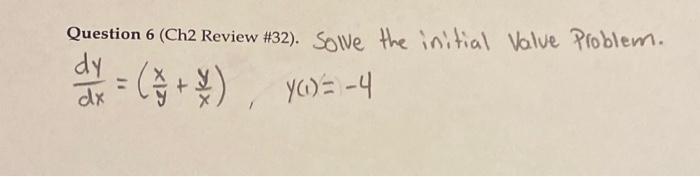 Question 6 (Ch2 Review #32). Solve the initial Value Problem.
dy/dx = (x/y + y/x) , y(1) = -4